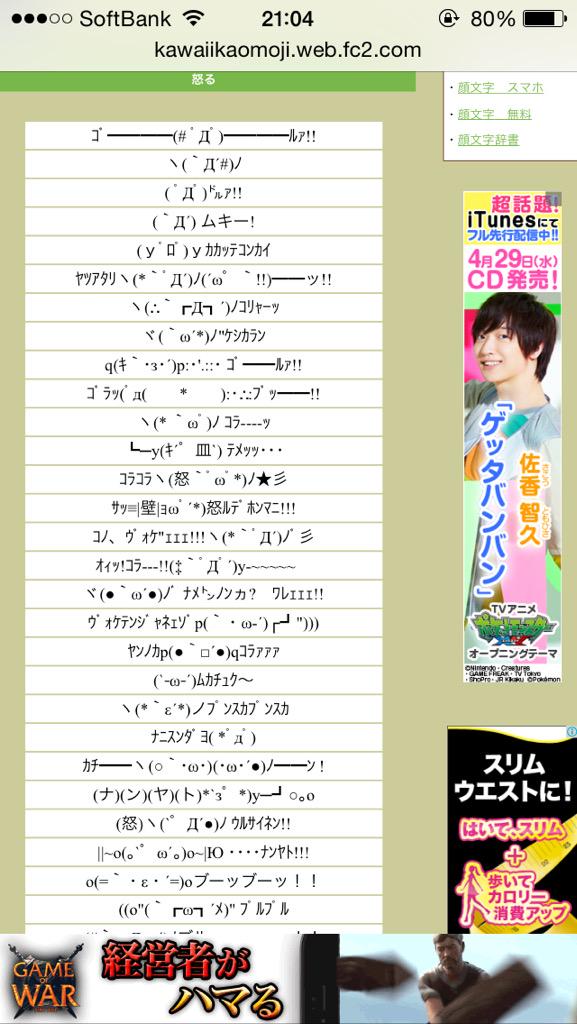 SoftBank 21:04 80%
kawaiikaomoji.web.fc2.com
怒る
ｺﾞ━━━━(# ﾟДﾟ)━━━━ﾙｧ!!
ヽ(｀Д´#)ﾉ
( ﾟДﾟ)㌦ｧ!!
(｀Д´) ムキー!
(ｙﾟﾛﾟ)ｙｶｶｯﾃｺﾝｶｲ
ﾔﾂｱﾀﾘヽ(*｀ﾟД´)ﾉ(´ω゜｀!!)━━ッ!!
ヽ(∴｀┏Д┓´)ノコリャーッ
ヾ(｀ω´*)ﾉ"ｹｼｶﾗﾝ
q(ｷ｀･з･´)p:･'.::･ｺﾞ━━ﾙｧ!!
ｺﾞﾗｯ(ﾟд(　　*　　):･∴:ﾌﾞｯ━━!!
ヽ(*｀ωﾟ)ﾉ ｺﾗ----ｯ
┗─y(ｷ´ﾟ 皿`) ﾃﾒｯｯ･･･
ｺﾗｺﾗヽ(怒｀ﾟωﾟ*)ﾉ★彡
ｻｯ≡|壁|ｮωﾟ´*)怒ﾙﾃﾞﾎﾝﾏﾆ!!!
ｺﾉ、ｳﾞｫｹ"ｪｪｪ!!!ヽ(*｀ﾟД´)ﾉﾞ彡
ｵｨｯ!ｺﾗ---!!(‡｀ﾟДﾟ´)y-~~~~~
ヾ(●｀ω´●)ﾉﾞ ﾅﾒ㌧ﾉﾝカ?　ﾜﾚｪｪｪ!!
ｳﾞｫｹﾃﾝｼﾞｬﾈｪｿﾞp(｀･ω-´)┏┛")))
ﾔﾝﾉｶp(●｀□´●)qｺﾗｧｧｧ
(`-ω-´)ﾑｶﾁｭｸ～
ヽ(*｀ε´*)ノﾌﾟﾝｽｶﾌﾟﾝｽｶ
ﾅﾆｽﾝﾀﾞﾖ( *ﾟдﾟ)
ｶﾁ━━ヽ(○｀･ω･)(･ω･´●)ﾉ━━ﾝ !
(ナ)(ン)(ヤ)(ト)*`з゜*)y─┛○｡o
(怒)ヽ(`゜Д´●)ﾉ ｳﾙｻｲﾈﾝ!!
||~o(｡`ﾟ ω´｡)o~|Ю ････ﾅﾝﾔﾄ!!!
o(=｀･ε･´=)oブーッブーッ！！
((o"(｀┏ω┓´ﾒ)" ﾌﾟﾙﾌﾟﾙ
・顔文字　スマホ
・顔文字　無料
・顔文字辞書
超話題!
iTunesにて
フル先行配信中!!
4月29日(水)
CD発売!
「ゲッタバンバン」
佐香 智久
さこう ともひさ
TVアニメ
ポケットモンスター
XY
オープニングテーマ
©Nintendo・Creatures
・GAME FREAK・TV Tokyo
・ShoPro・JR Kikaku ©Pokémon
スリム
ウエストに!
はいて、スリム
+
歩いて
カロリー
消費アップ
GAME
OF
WAR
経営者が
ハマる